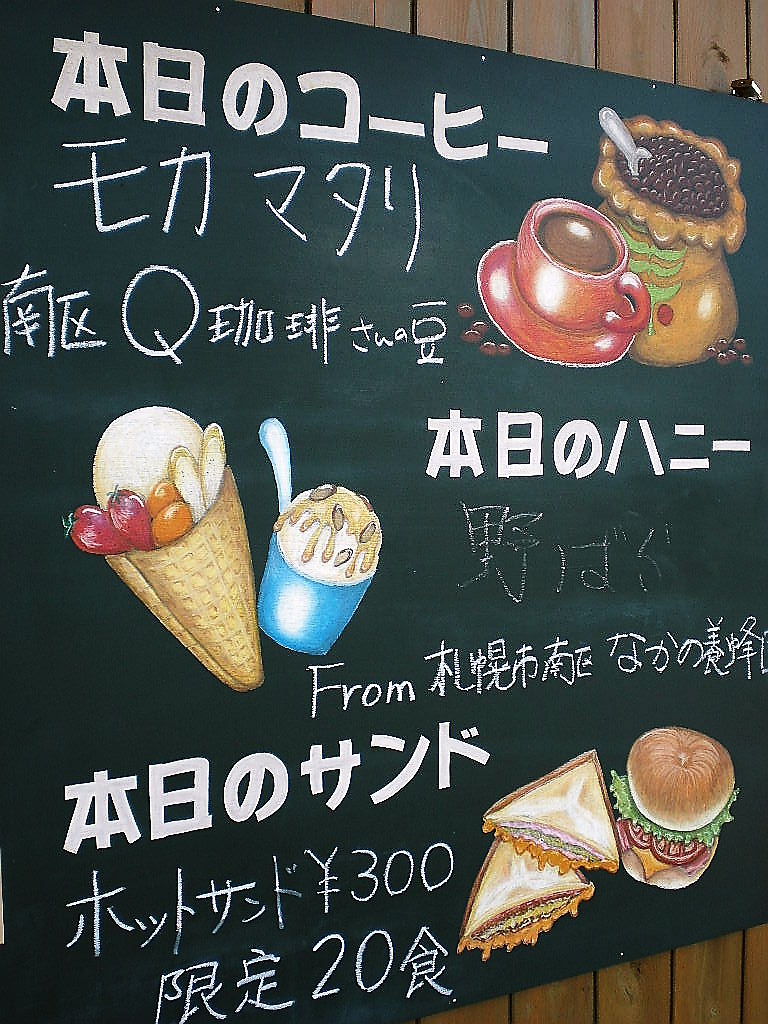 本日のコーヒー
モカ マタリ
南区 Q 珈琲 さんの豆
本日のハニー
野ばら
From 札幌市南区 なかの養蜂
本日のサンド
ホットサンド ¥300
限定 20食